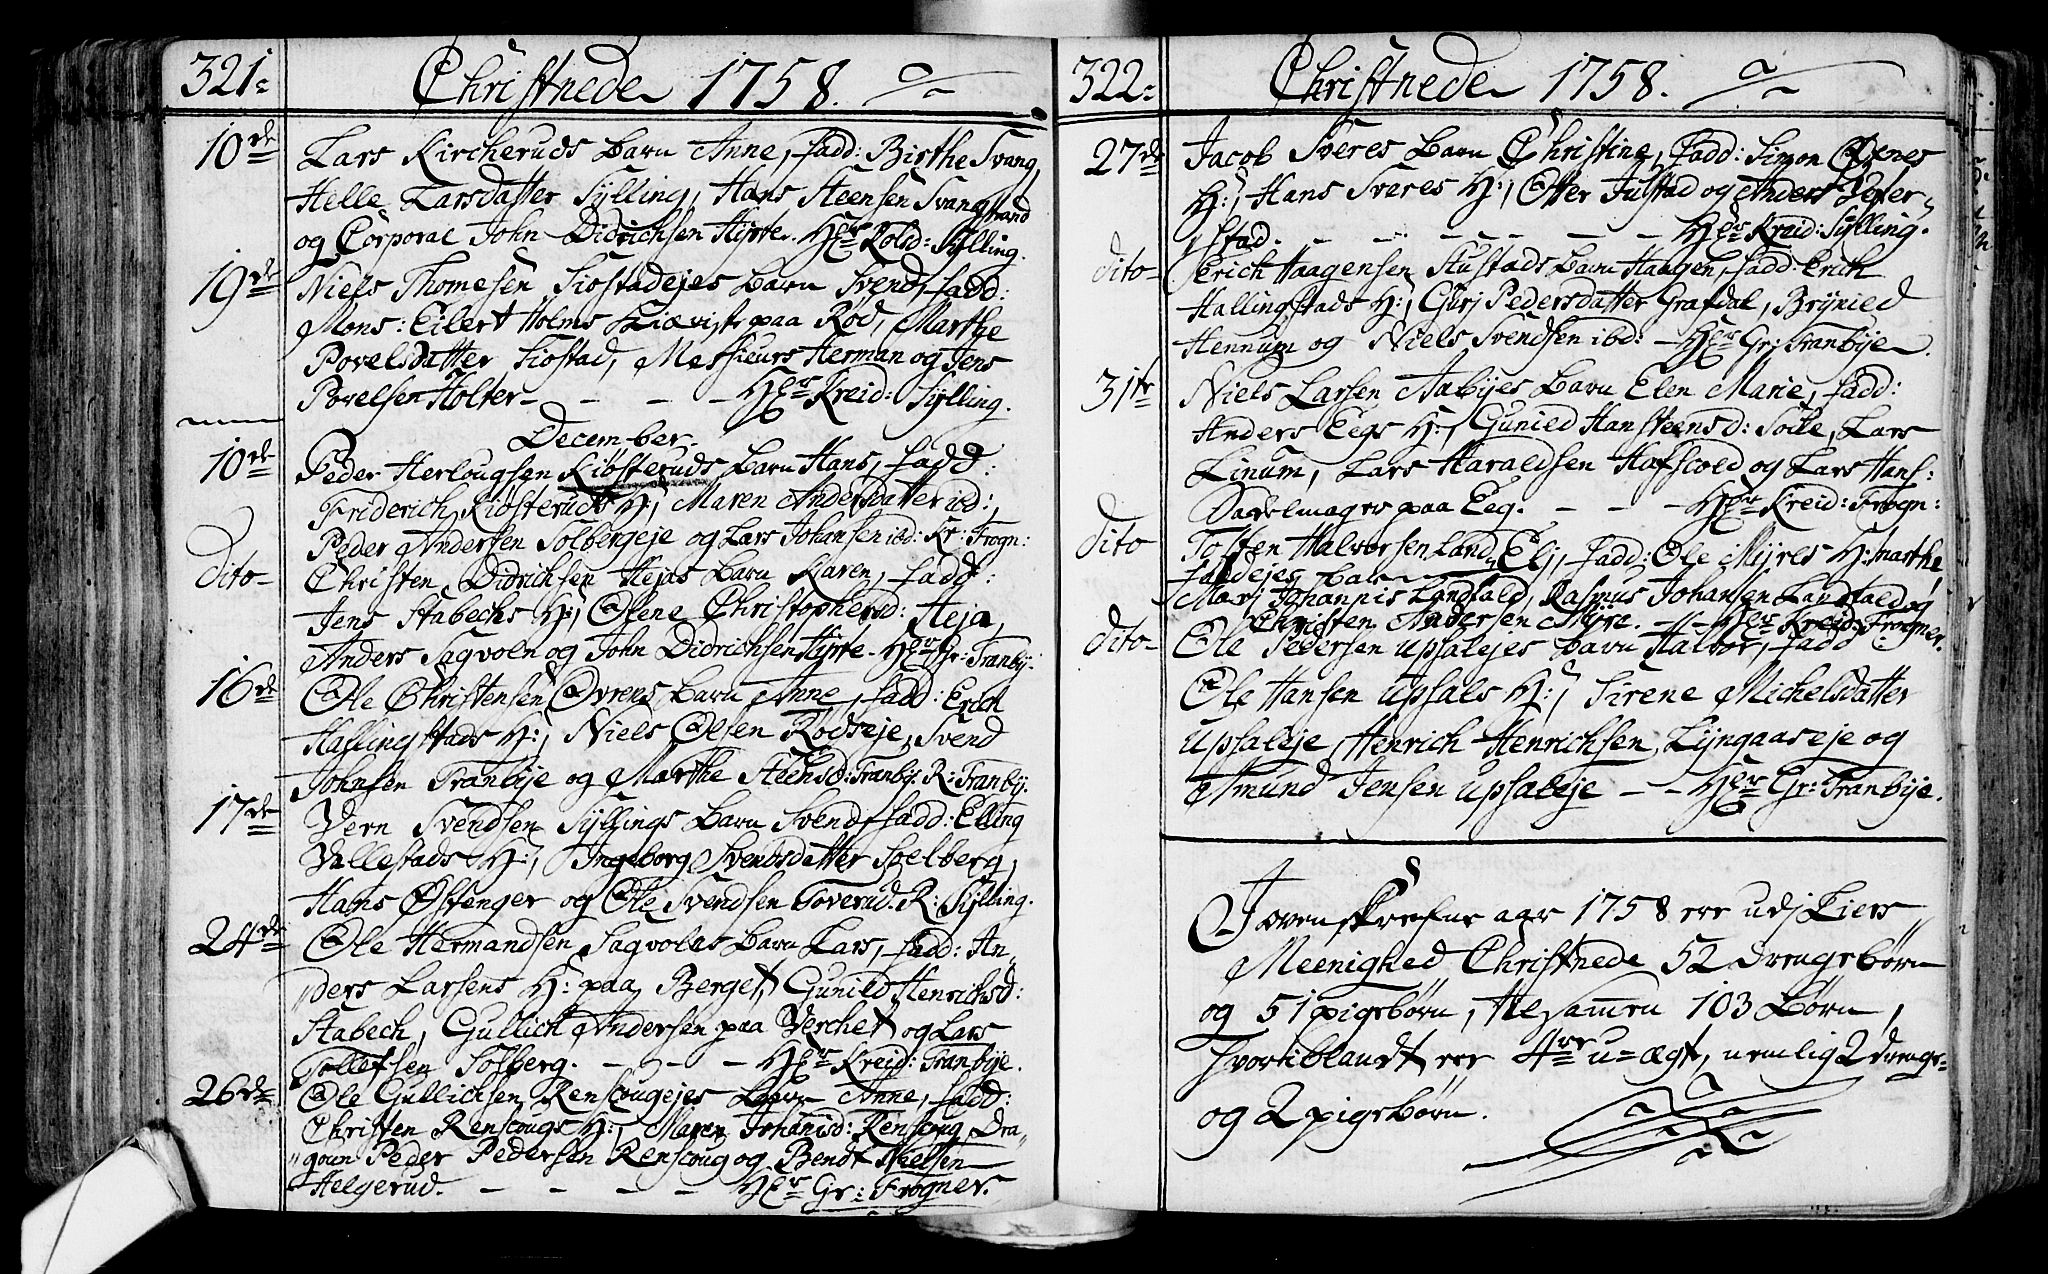 321.
Christnede 1758.
10de Lars Kircheruds barn Anne, fadd: Birthe Svang,
Helle Larsdatter Sylling, Hans Steensen Svangstrand
og Corporal John Didrichsen Hyrte. Hr Rolsd: Sylling.
19de Niels Thomesen Siøstadejes barn Svend, fadd:
Mons: Eilert Holms Kiæriste paa Rød, Marthe
Povelsdatter Siostad, Messieurs Herman og Jens
Povelsen Holter - - - - Hr Kreid: Sylling.
December.
10de Peder Herlougsen Kiøsteruds barn Hans, fadd:
Friderich Kiøsteruds H:, Maren Andersdatter ibd:,
Peder Andersen Solbergeje og Lars Johansen ibd: Kr: Frogn:
Dito- Christen Didrichsen Hejas barn Karen, fadd:
Jens Stabechs H:, Olene Christophersd: Heja,
Anders Sagvoln og John Didrichsen Hyrte. Hr Gr: Tranby:
16de Ole Christensen Ovrens barn Anne, fadd: Erich
Hallingstads H:, Niels Olsen Rødseje, Svend
Johnsen Tranbye og Marthe Steensd: Tranby. R: Tranby.
17de Vern Svendsen Syllings barn Svend, fadd: Elling
Vallestads H:, Ingeborg Svendsdatter Solberg,
Hans Østenger og Ole Svendsen Toverud. R: Sylling.
24de Ole Hermandsen Sagvolds barn Lars, fadd: An-
ders Larsens H: paa Berget, Gunild Henrichsd:
Stabech, Gullich Andersen paa Verchet og Lars
Tollefsen Solberg. - - - - Hr Kreid: Tranbye.
26de Ole Gullichsen Renscougejes barn Anne, fadd:
Christen Renscougs H:, Maren Johanisd: Renscoug, Dra-
goun Peder Pedersen Renscoug og Bendt Neelsen
Helgerud. - - - - Hr Gr: Frogner.
322.
Christnede 1758.
27de Jacob Sveres barn Christine, fadd: Simon Oxnes
H:, Hans Sveres H:, Otter Justad og Anders Peter-
stad. - - - - - - - Hr Kreid: Sylling.
dito- Erich Haagensen Stustads barn Haagen, fadd: Erich
Hallingstads H:, Guri Pedersdatter Grafdal, Brynild
Hennum og Niels Svendsen ibd: - Hr Gr: Tranbye.
31te Niels Larsen Aabyes barn Elen Marie, fadd:
Anders Eegs H:, Gunild Hansteensd: Solle, Lars
Linum, Lars Haraldsen Hafscold og Lars Hans:
Sadelmager paa Eeg. - - - Hr Kreid: Frogn:
dito Tosten Halvorsen Land- Eli, fadd: Ole Myres H: Marthe
faldejes barn
Mari Johannis Landfald, Rasmus Johansen Landfald og
Christen Andersen Myre. - - Hr Kreid: Frogner.
dito- Ole Pedersen Upsalejes barn Halvor, fadd:
Ole Hansen Upsals H:, Sirene Michelsdatter
Upsaleje, Henrich Henrichsen Lyngaaseje og
Amund Jensen Upsaleje - - Hr Gr: Tranbye.
I ovenskrefne aar 1758 ere udj Liers
Meenighed Christnede 52 drengebørn
og 51 pigebørn, tilsamen 103 Børn,
hvoriblandt ere 4re u=ægte, nemlig 2 drenge-
og 2 pigebørn.